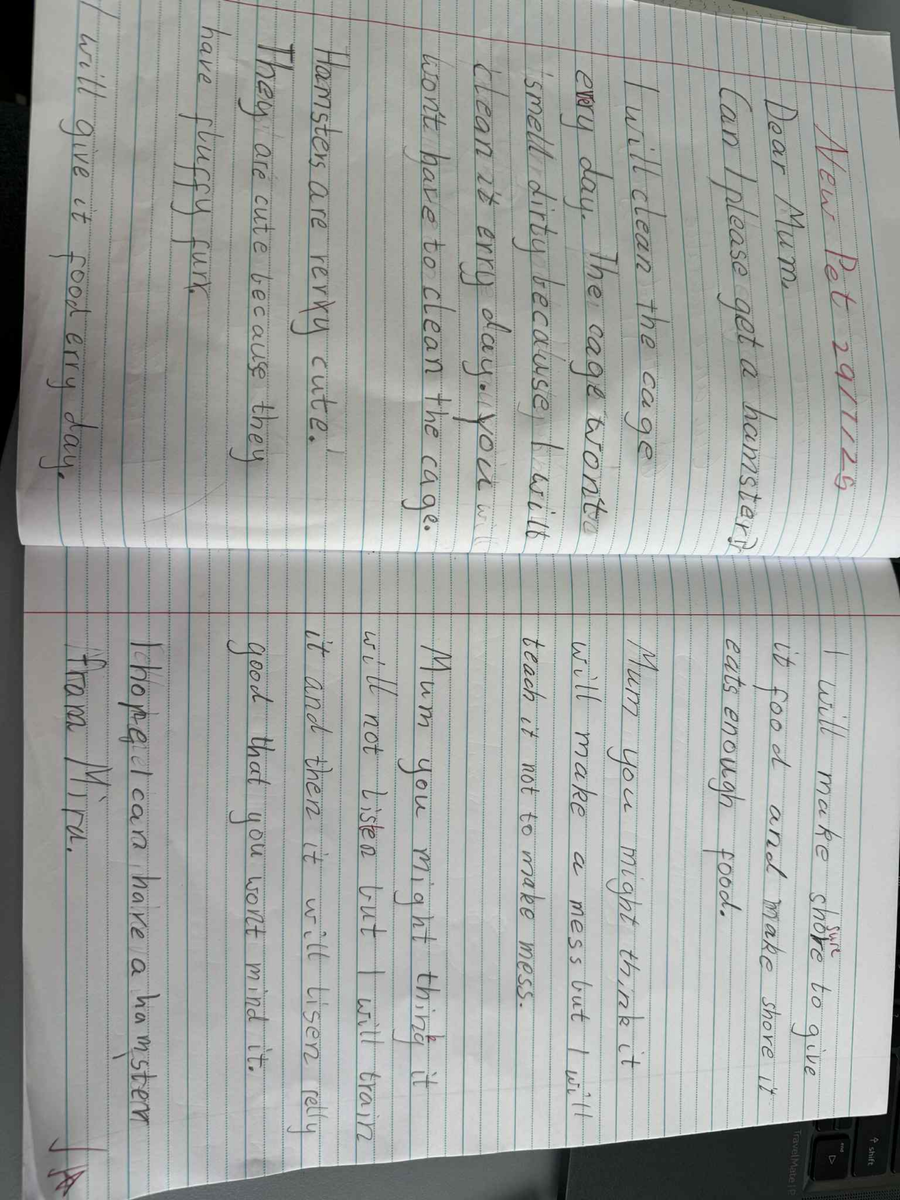 New Pet 29/7/25
Dear Mum,
Can I please get a hamster?
I will clean the cage
every day. The cage wont
smell dirty because I will
clean it erry day. you will
won't have to clean the cage.
Hamsters are rerry cute!
They are cute because they
have fluffy furr.
I will give it food erry day.
I will make shore to give
sure
it food and make shore it
eats enough food.
Mum you might think it
will make a mess but I will
teach it not to make mess.
Mum you might think it
will not listen but I will train
it and then it will lisen relly
good that you wont mind it.
I hope I can have a hamster
Mira.
TravelMate
shift
end